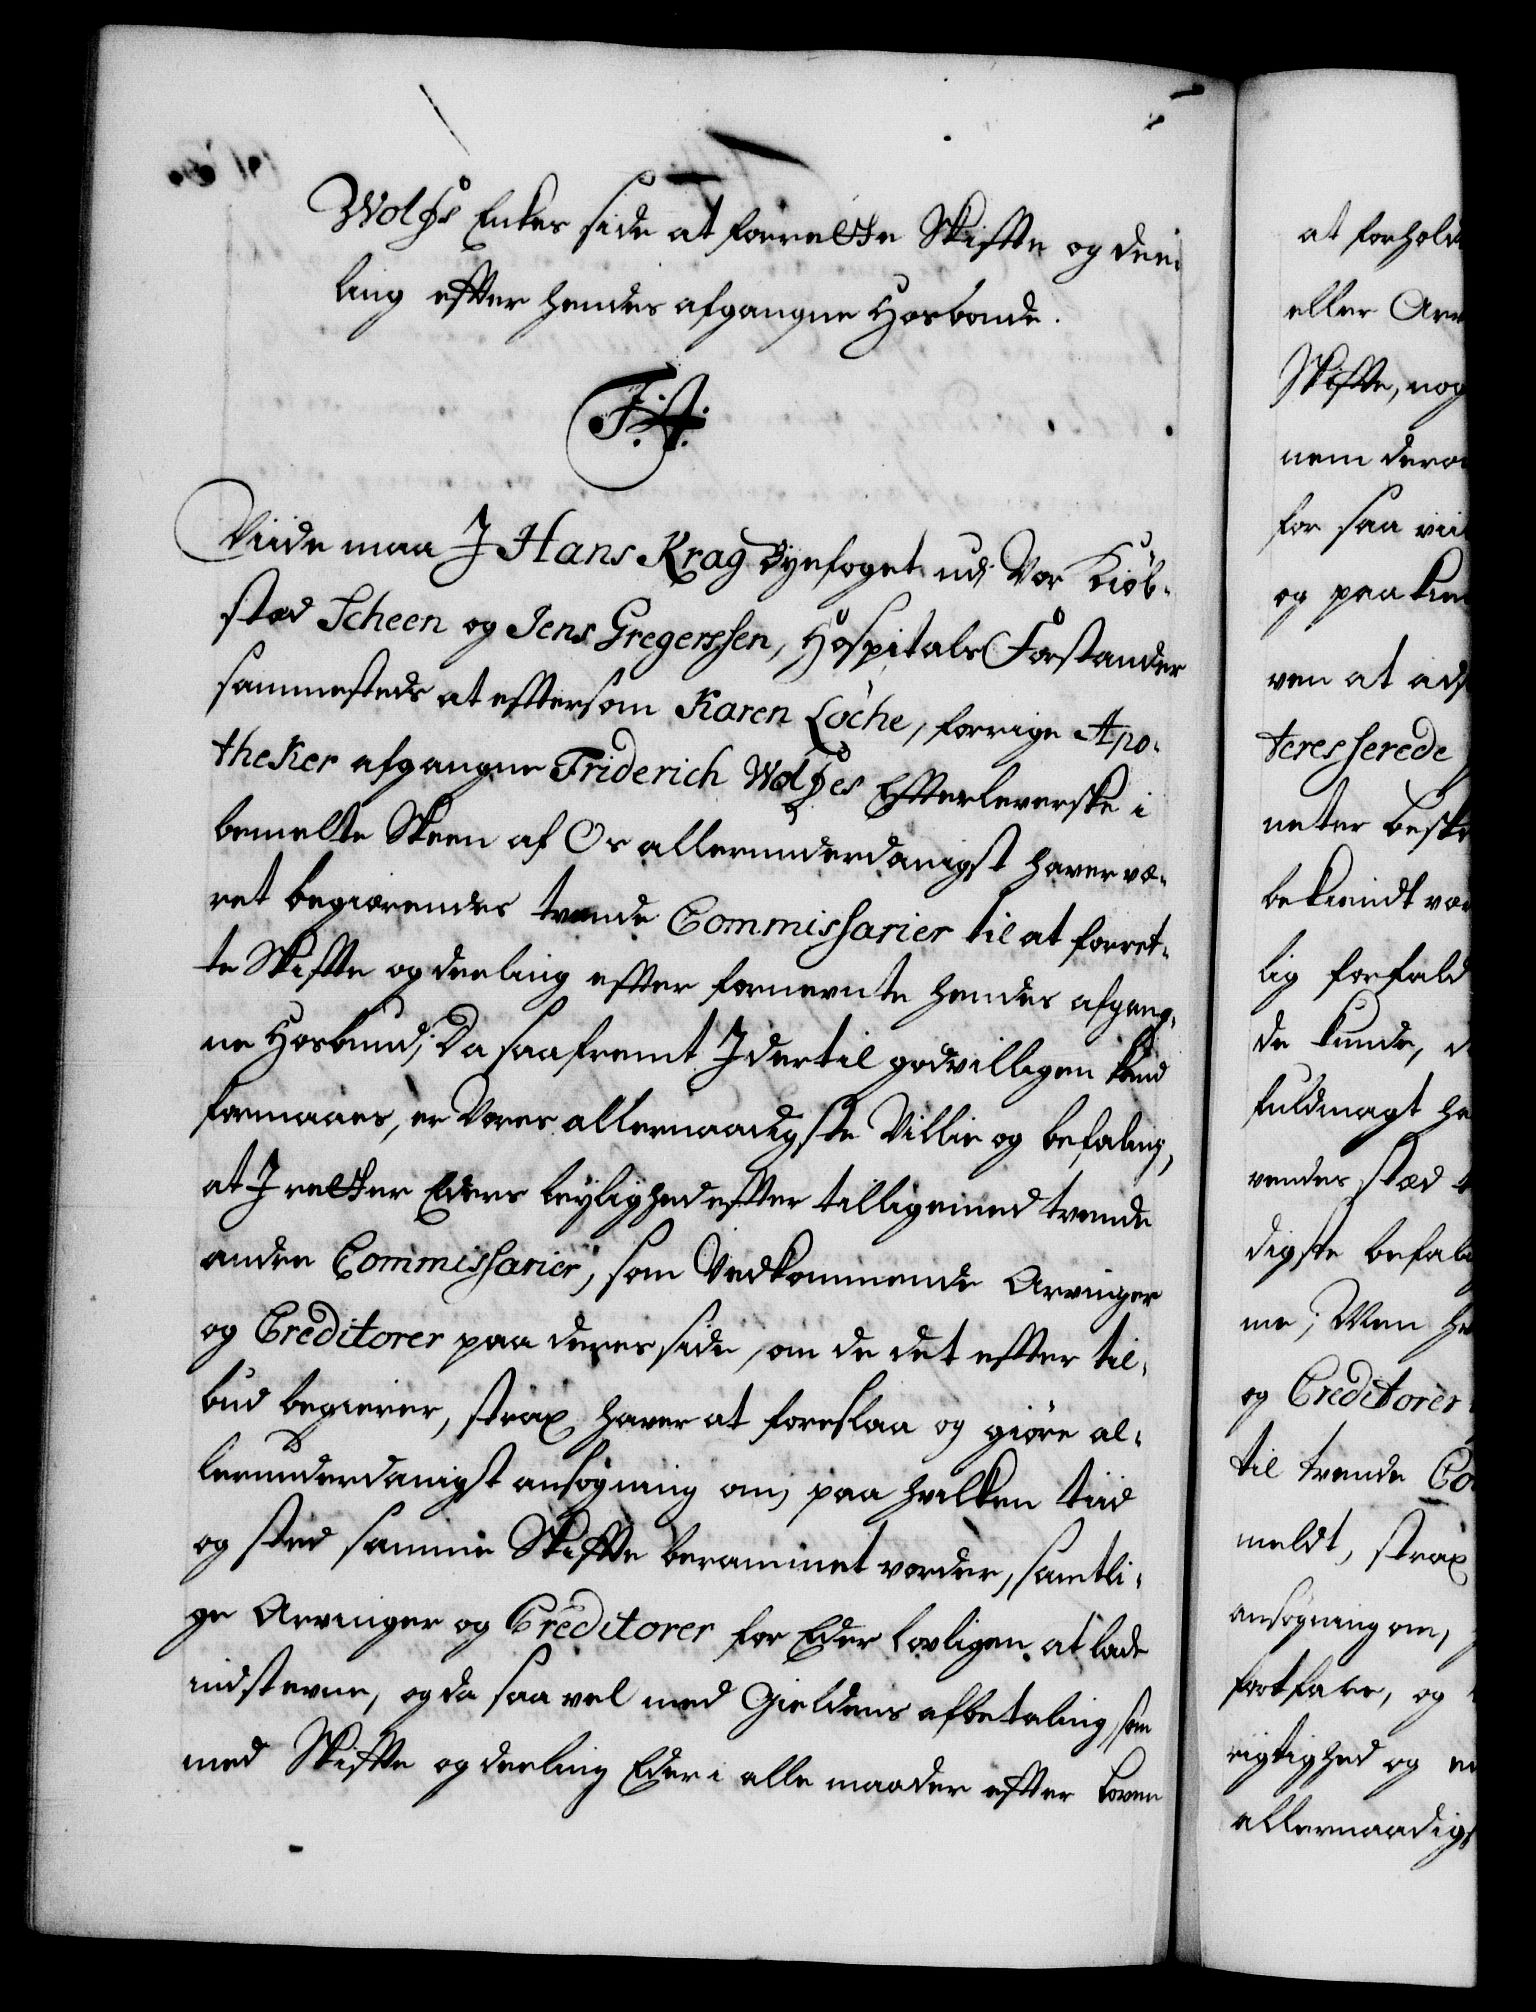 Wolffs Enkes side at forrette Skiffte og dee¬
ling effter hendes afgangne Hosbonde.
F. 4.
Viide maa J Hans Krag Byefoget udj Vor Kiøb¬
stæd Scheen og Jens Gregerssen, Hospitals Forstander
sammesteds at efftersom Karen Löche, forrige Apo¬
theker afgangne Friderich Wolffes Effterleverske i
bemelte Skeen af Os allerunderdanigst haver væ¬
ret begiærendes tvende Commissarier til at forret¬
te Skiffte og deeling effter fornevnte hendes afgang¬
ne Hosbund; Da saafremt J dertil godvilligen kand
formaaes, er Vores allernaadigste Villie og befaling,
at J retter Eders leylighed effter tilligemed tvende
andre Commissarier, som Vedkommende Arvinger
og Creditorer paa deres side, om de det effter til¬
bud begierer, strax haver at foreslaa og giöre al¬
lerunderdanigst ansøgning om, paa hvilken tiid
og sted samme Skiffte berammet vorder, samtli¬
ge Arvinger og Creditorer for Eder lovligen at lade
indstevne, og da saa vel med Gieldens afbetaling, som
med Skiffte og deeling Eder i alle maader effter Loven
at forhold
eller Arv
Skiffte, nog
nem dero
for saa viit
og paa kien
ven at ads
teresserede
neter beske
bekiendt vær
lig forfald
de kunde, d
fuldmagt ha
vendes stæd
digste befal
me; Men h
og Creditorer
til tvende Co
meldt, strax
ansøgning om,
fortfare, og
rigtighed og
allernaadigs